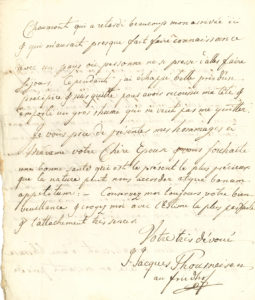 Chaumont qui a retardé beaucoup mon arrivée ici
& qui m'aurait presque fait faire connaissance
avec un pays où personne ne se presse d'aller faire
séjour. Cependant j'ai échappé belle près d'un
précipice & j'en suis quitte pour avoir secoué ma tête &
emporté un gros rhume qui ne veut pas me quitter.
Je vous prie de présenter mes hommages à
Madame votre chère épouse & vous souhaite
une bonne santé qui est le présent le plus précieux
que la nature peut nous accorder atque bonam
appetitum. Conservez moi toujours votre bien-
veuillance & croyez moi avec l'Estime la plus parfaite
& l'attachement très sincère
Votre très dévoué
J. Jacques Thourneisen
au